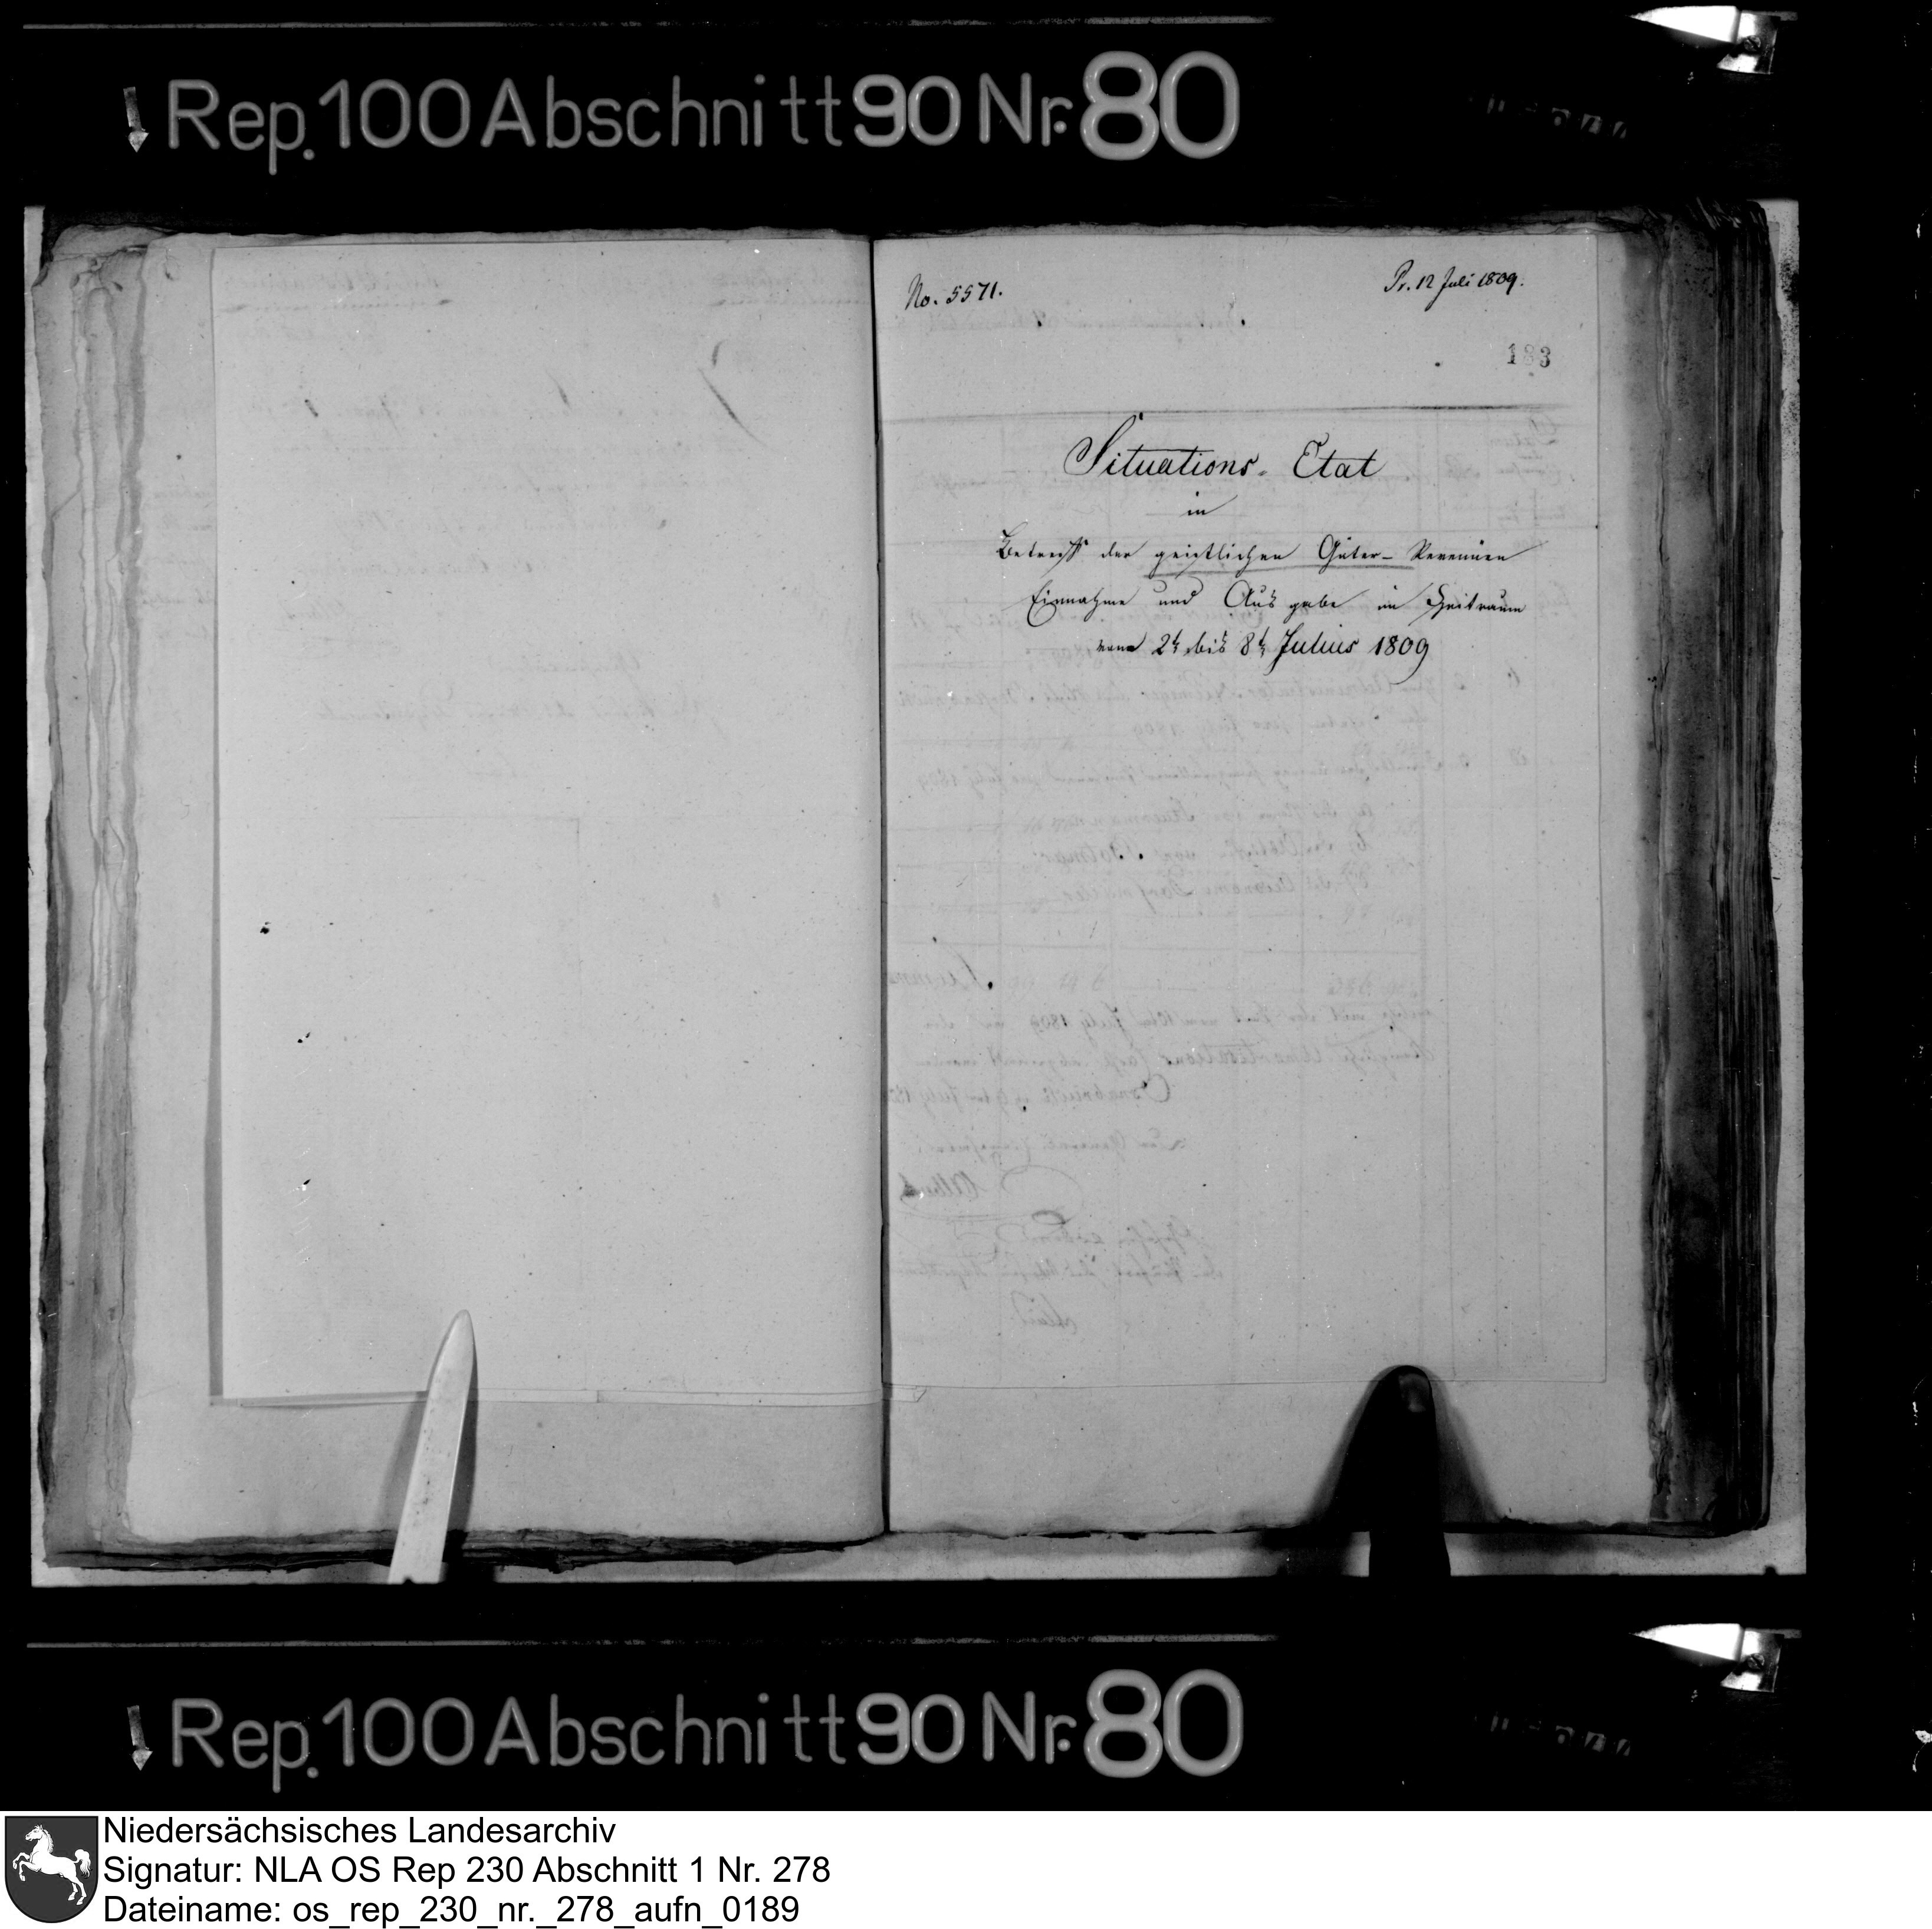 Rep. 100 Abschnitt 90 Nr. 80
No. 5571.
Pr. 12 Juli 1809.
183
Situations-Etat
in
Betreff der geistlichen Güter-Revenüen
Einnahme und Ausgabe im Zeitraum
vom 2t bis 8t Julius 1809
Rep. 100 Abschnitt 90 Nr. 80
Niedersächsisches Landesarchiv
Signatur: NLA OS Rep 230 Abschnitt 1 Nr. 278
Dateiname: os_rep_230_nr._278_aufn_0189